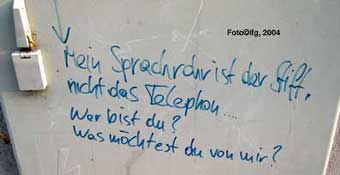 Foto©ifg, 2004
Mein Sprachrohr ist der Stift,
nicht das Telephon....
Wer bist du?
Was möchtest du von mir?